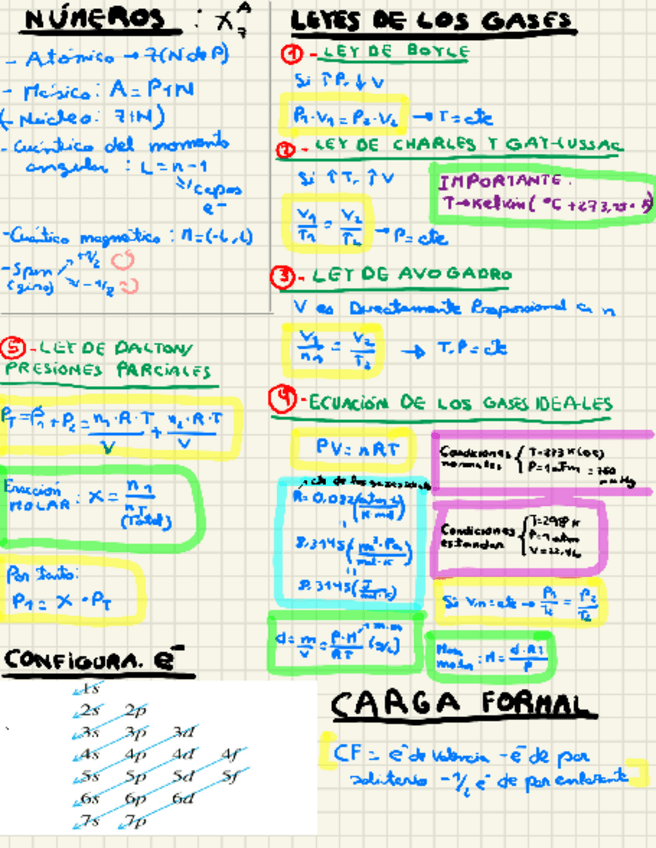 NÚMEROS : X A Z
- Atómico → Z (N de P)
- Másico : A = P+N
(- Núcleo : Z+N)
- Cuántico del momento
angular : L = n-1
capas
e⁻
- Cuántico magnético : M = (-L, L)
- Spin +1/2
(giro) -1/2
LEYES DE LOS GASES
1 - LEY DE BOYLE
Si ↑P, ↓V
P₁·V₁ = P₂·V₂ → T = cte
2 - LEY DE CHARLES Y GAY-LUSSAC
Si ↑T, ↑V
V₁/T₁ = V₂/T₂ → P = cte
IMPORTANTE:
T → Kelvin (°C + 273,15 = K)
3 - LEY DE AVOGADRO
V es Directamente Proporcional a n
V₁/n₁ = V₂/T₂ → T, P = cte
4 - ECUACIÓN DE LOS GASES IDEALES
PV = nRT
cte de los gases ideales
R = 0,082 (atm·L/K·mol)
8,3145 (m³·Pa/mol·K)
8,3145 (J/mol·K)
Condiciones normales { T = 273 K (0°C)
P = 1 atm = 760
mmHg
Condiciones estandar { T = 298 K
P = 1 atm
V = 22,4L
Si V,n = cte → P₁/T₁ = P₂/T₂
d = m/V = P·M/RT (g/L)
Masa molar : M = d·RT/P
5 - LEY DE DALTON/
PRESIONES PARCIALES
P_T = P₁ + P₂ = n₁·R·T/V + n₂·R·T/V
Fracción
MOLAR : X = n₁/n_T
(Total)
Por tanto:
P₁ = X · P_T
CONFIGURA. e⁻
1s
2s 2p
3s 3p 3d
4s 4p 4d 4f
5s 5p 5d 5f
6s 6p 6d
7s 7p
CARGA FORMAL
CF = e⁻ de valencia - e⁻ de par
solitario - 1/2 e⁻ de par enlazante